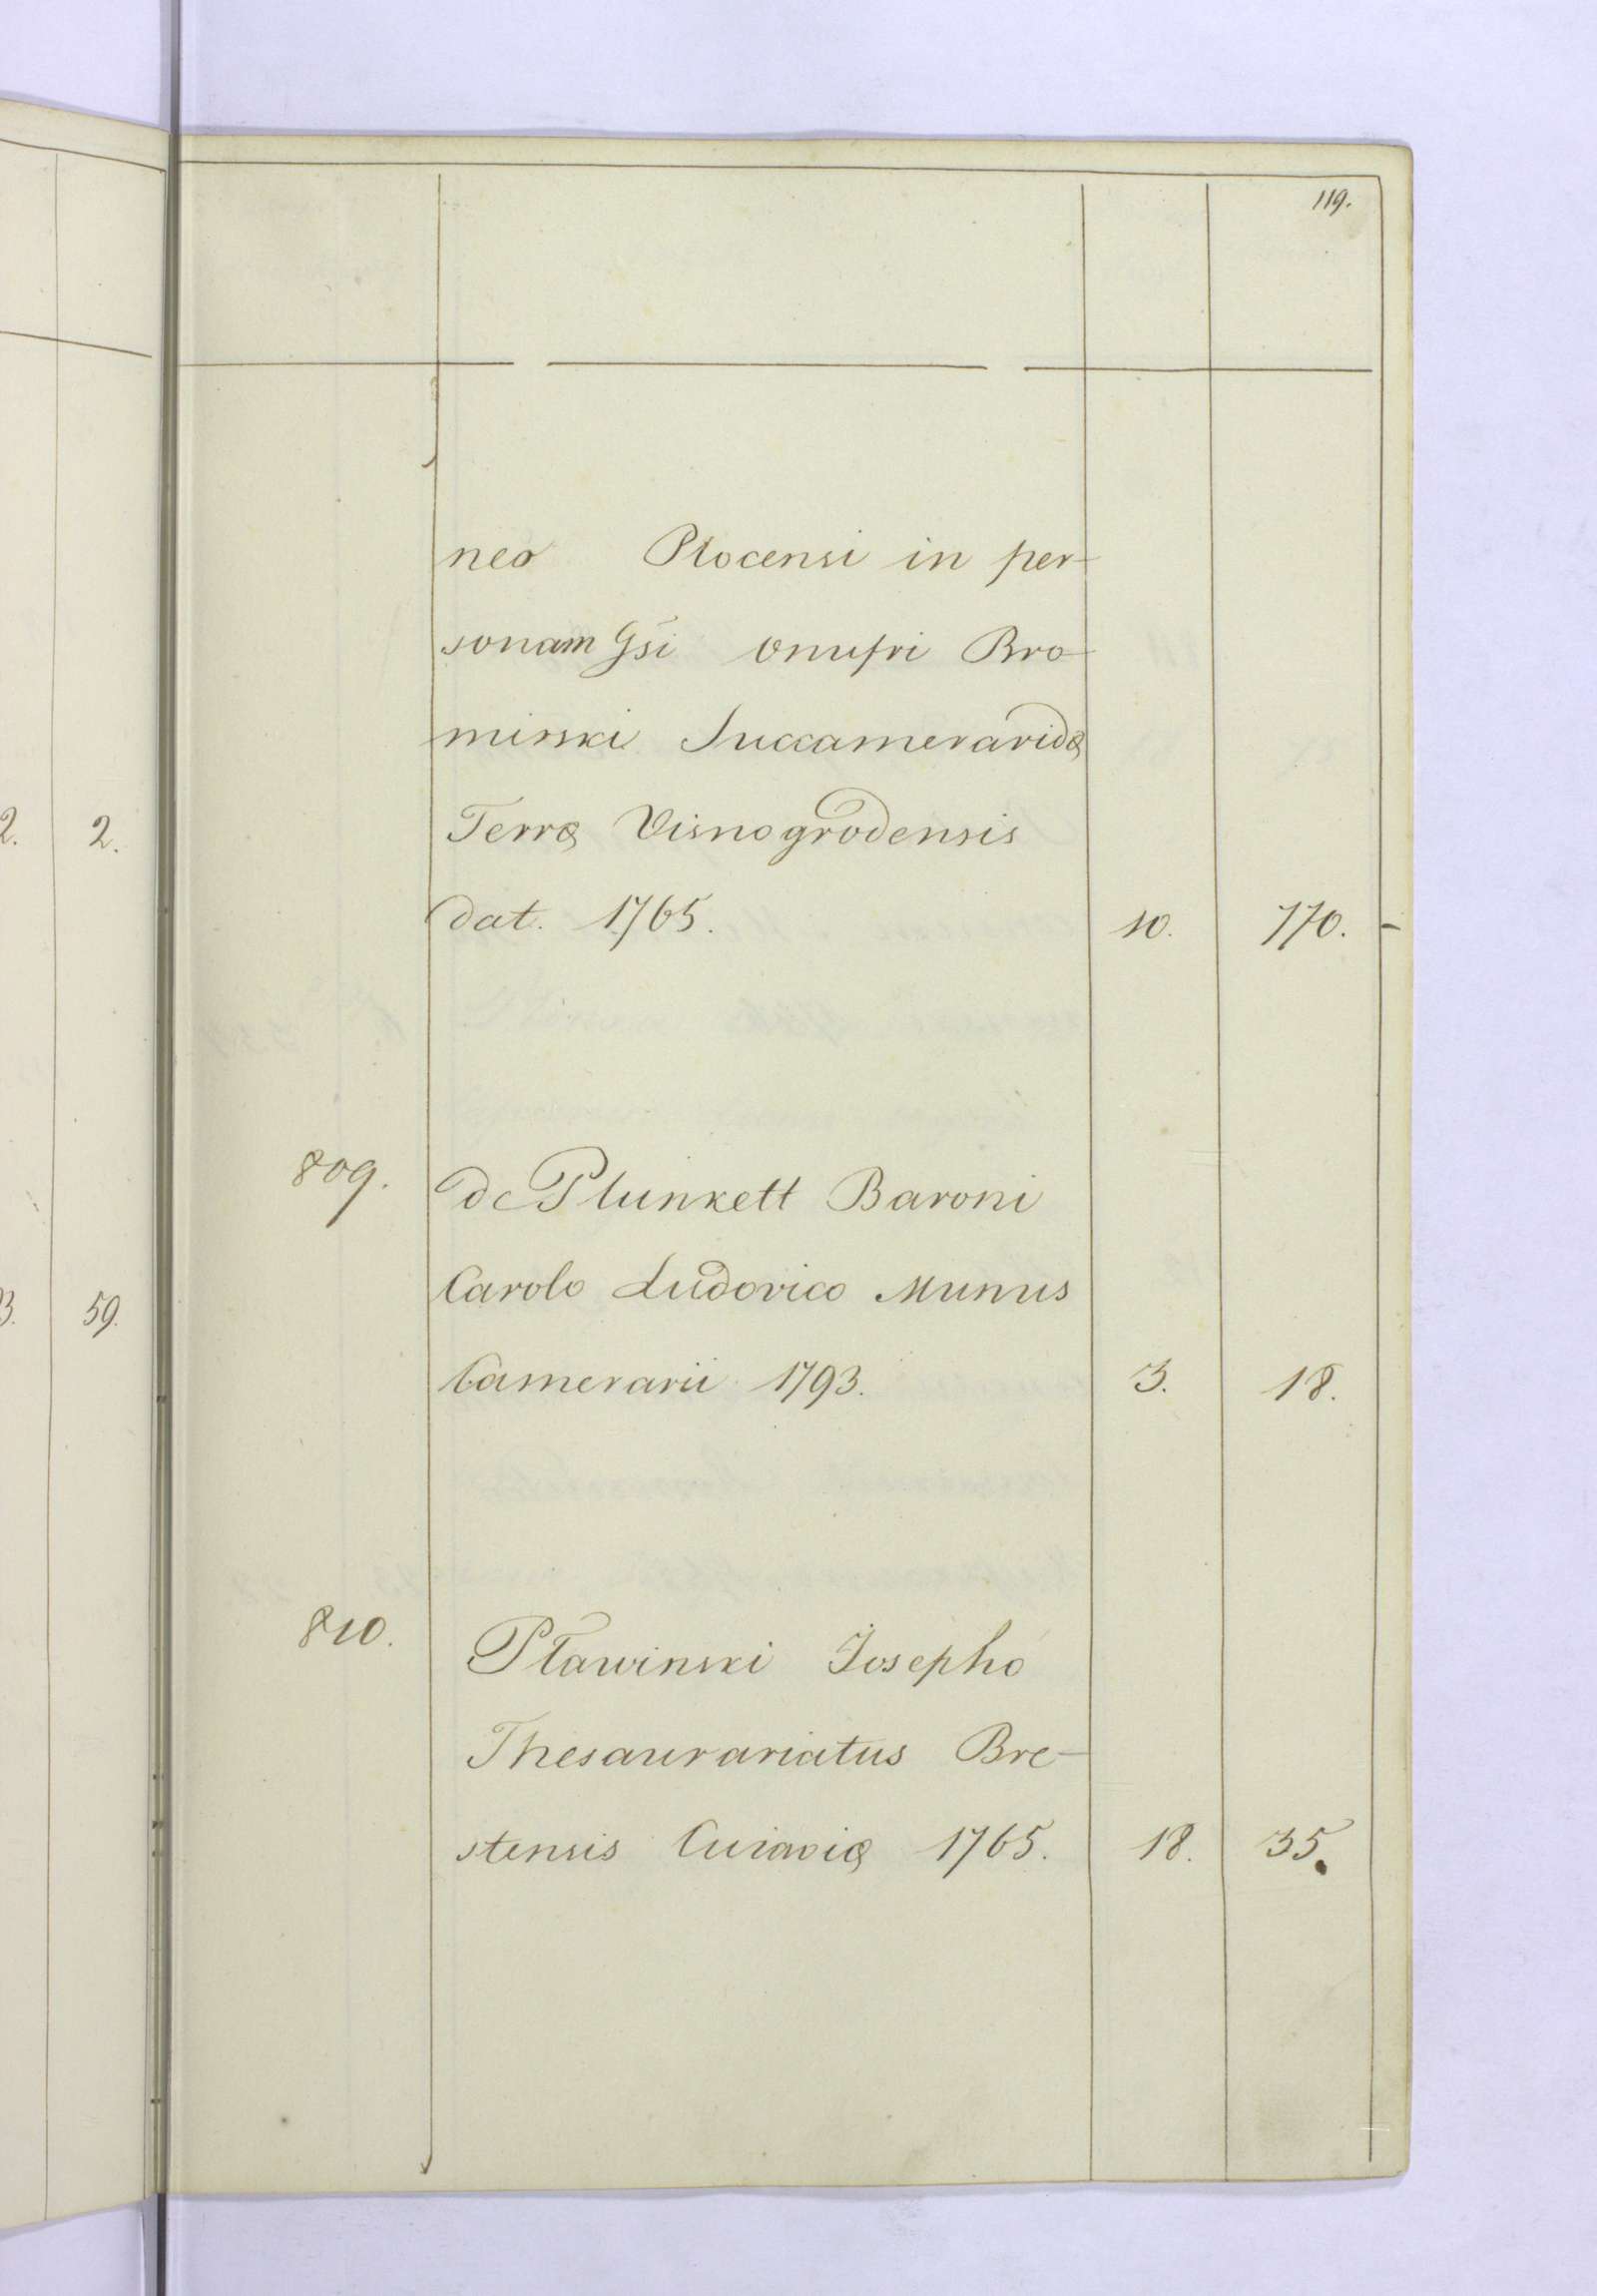 119.
neo Plocensi in per-
sonam Gsi Onufri Bro-
minski Succameraridæ
Terræ Visnogrodensis
dat. 1765. 10. 770.
809. de Plunkett Baroni
Carolo Ludovico Munus
Camerarii 1793. 3. 18.
810. Pławinski Josepho
Thesaurariatus Bre-
stensis Cuiaviæ 1765. 18. 35.
2. 2.
3. 59.